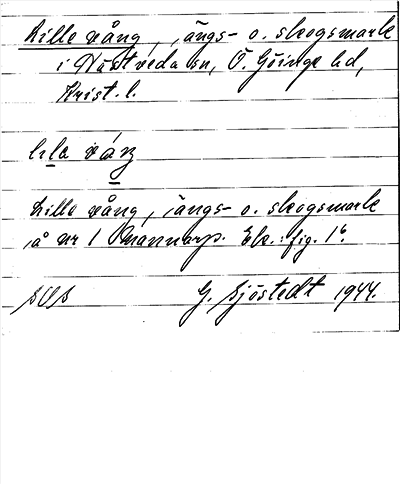 Lille vång, ängs- o. skogsmark
i Nästveda sn, Ö. Göinge hd,
Krist. l.
lila váŋ
Lille vång, ängs- o. skogsmark
å nr 1 Mannarp. Ek. fig. 1⁶.
SOS G. Sjöstedt 1944.